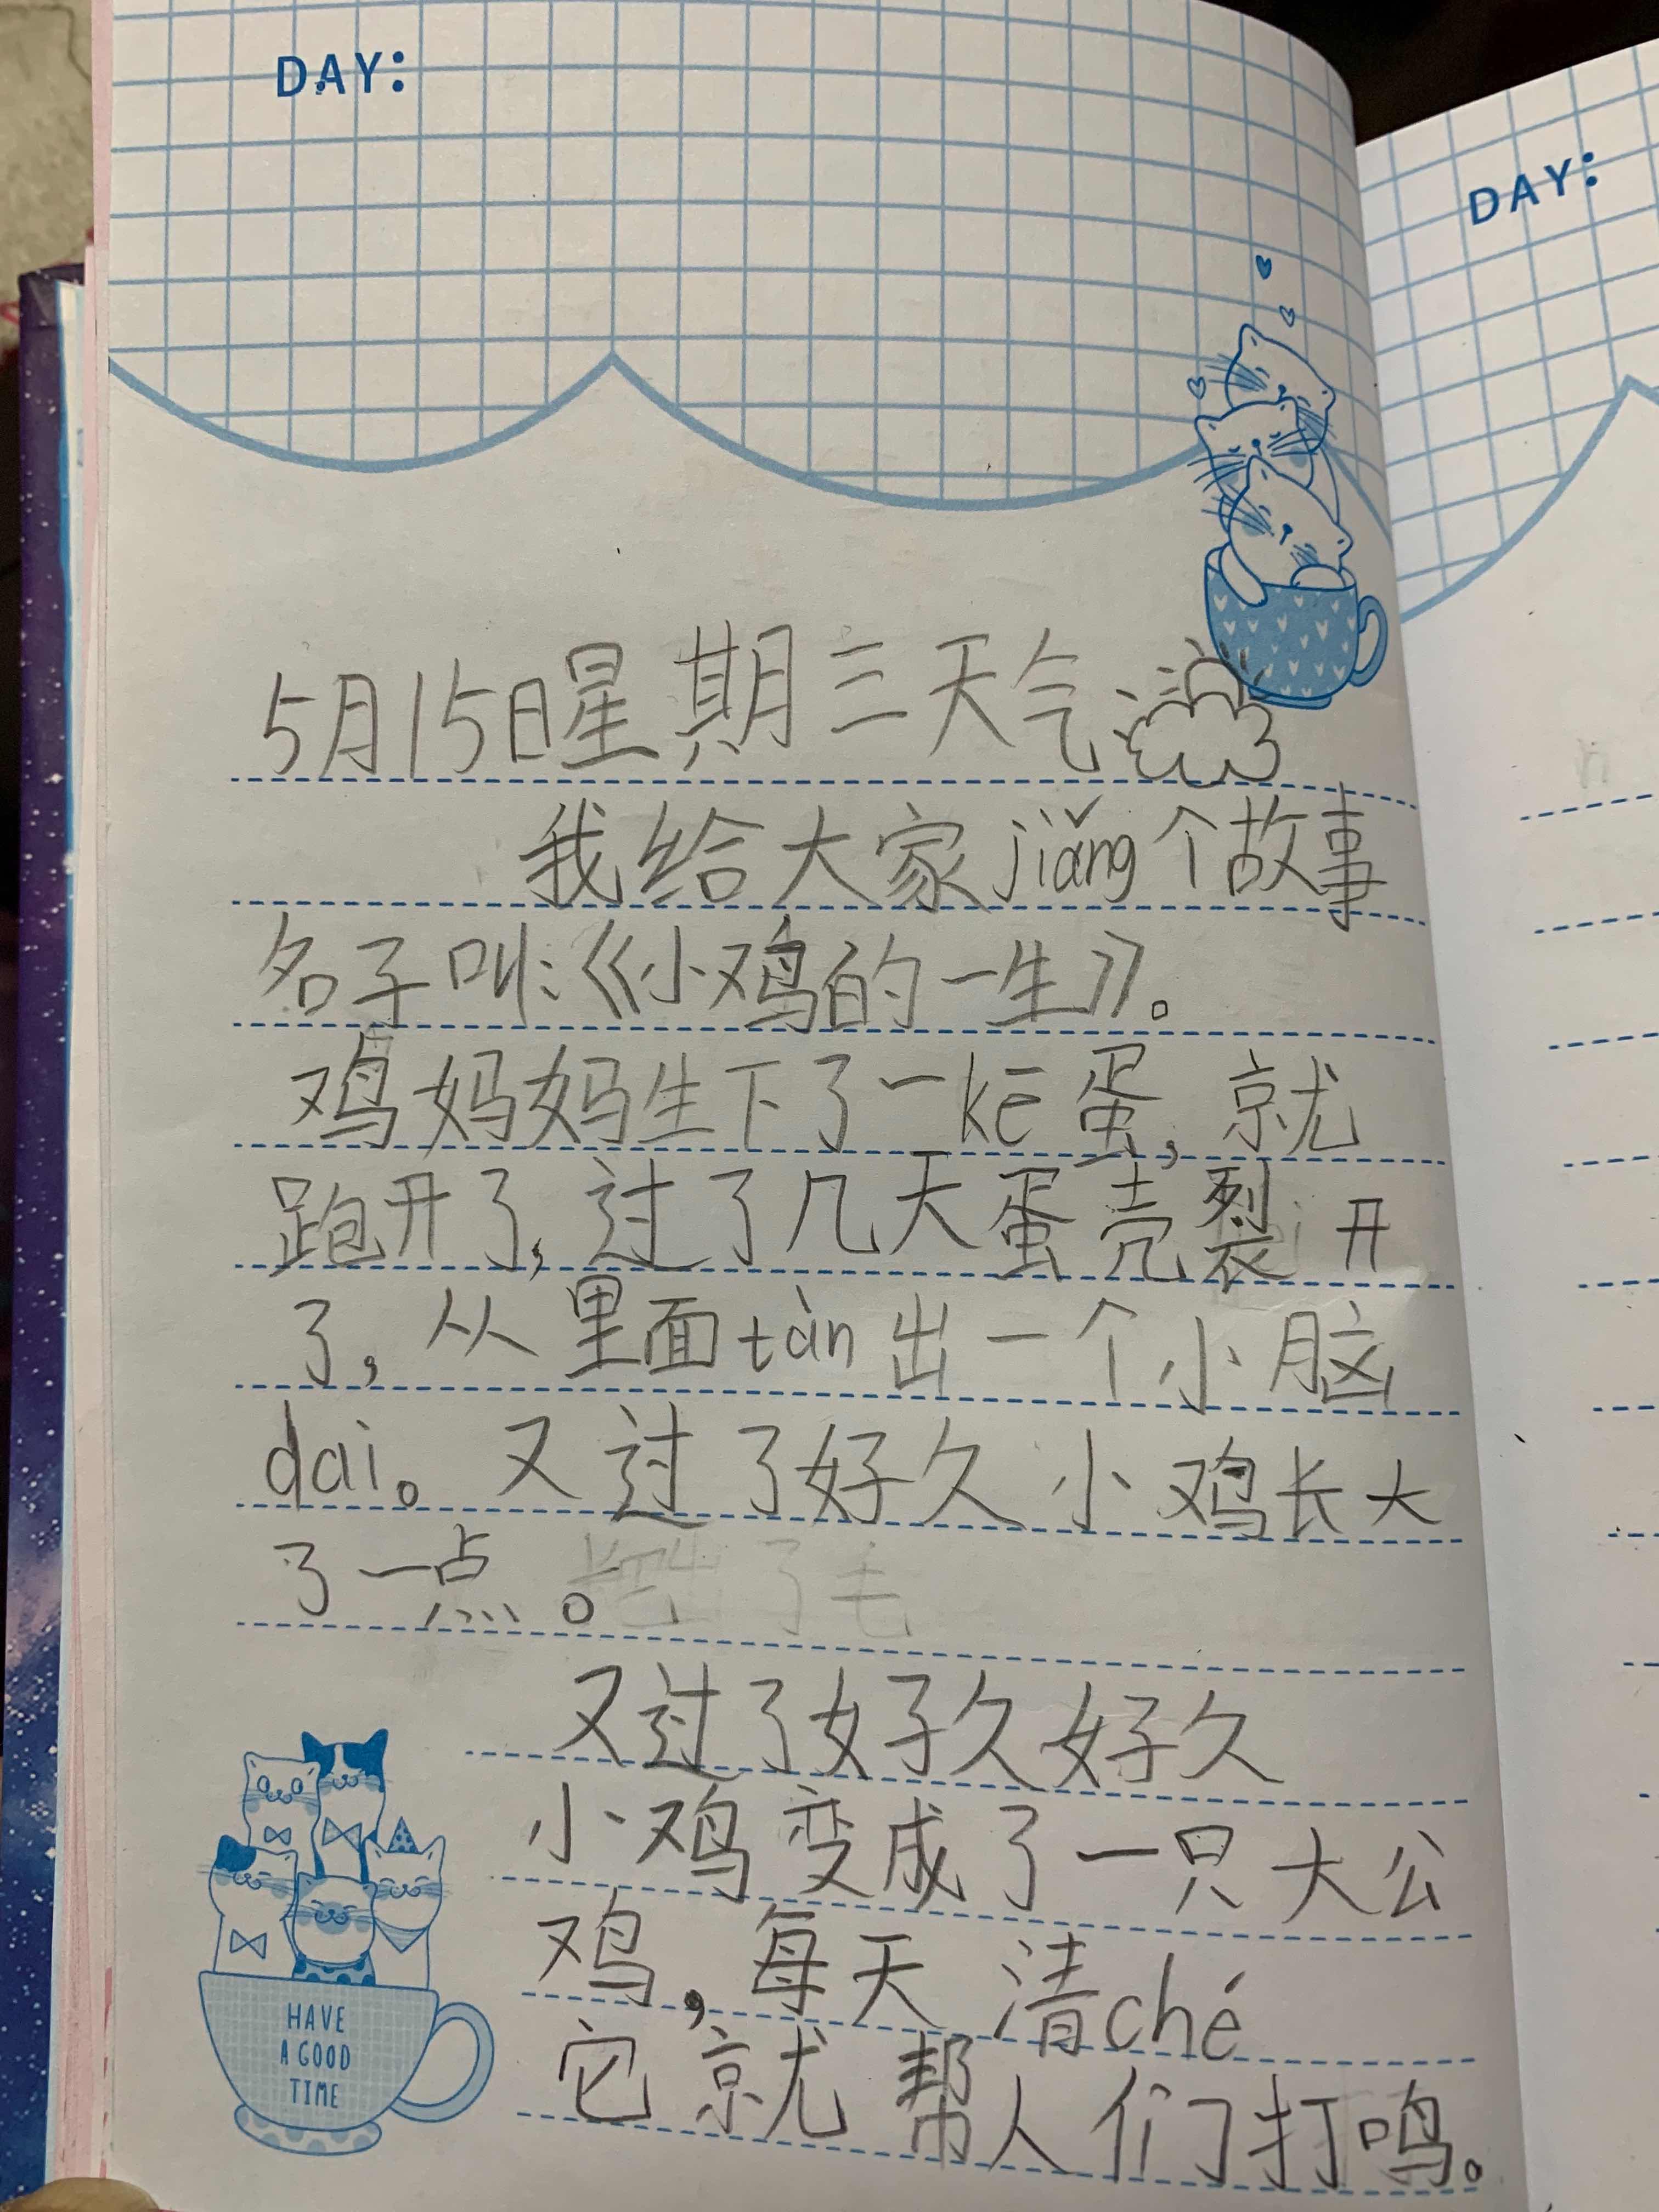 DAY:
DAY:
5月15日星期三天气
我给大家jiǎng个故事
名子叫:《小鸡的一生》。
鸡妈妈生下了一kē蛋,就
跑开了,过了几天蛋壳裂开
了,从里面tàn出一个小脑
dai。又过了好久小鸡长大
了一点。
又过了好久好久
小鸡变成了一只大公
鸡,每天清ché
它就帮人们打鸣。
HAVE
A GOOD
TIME